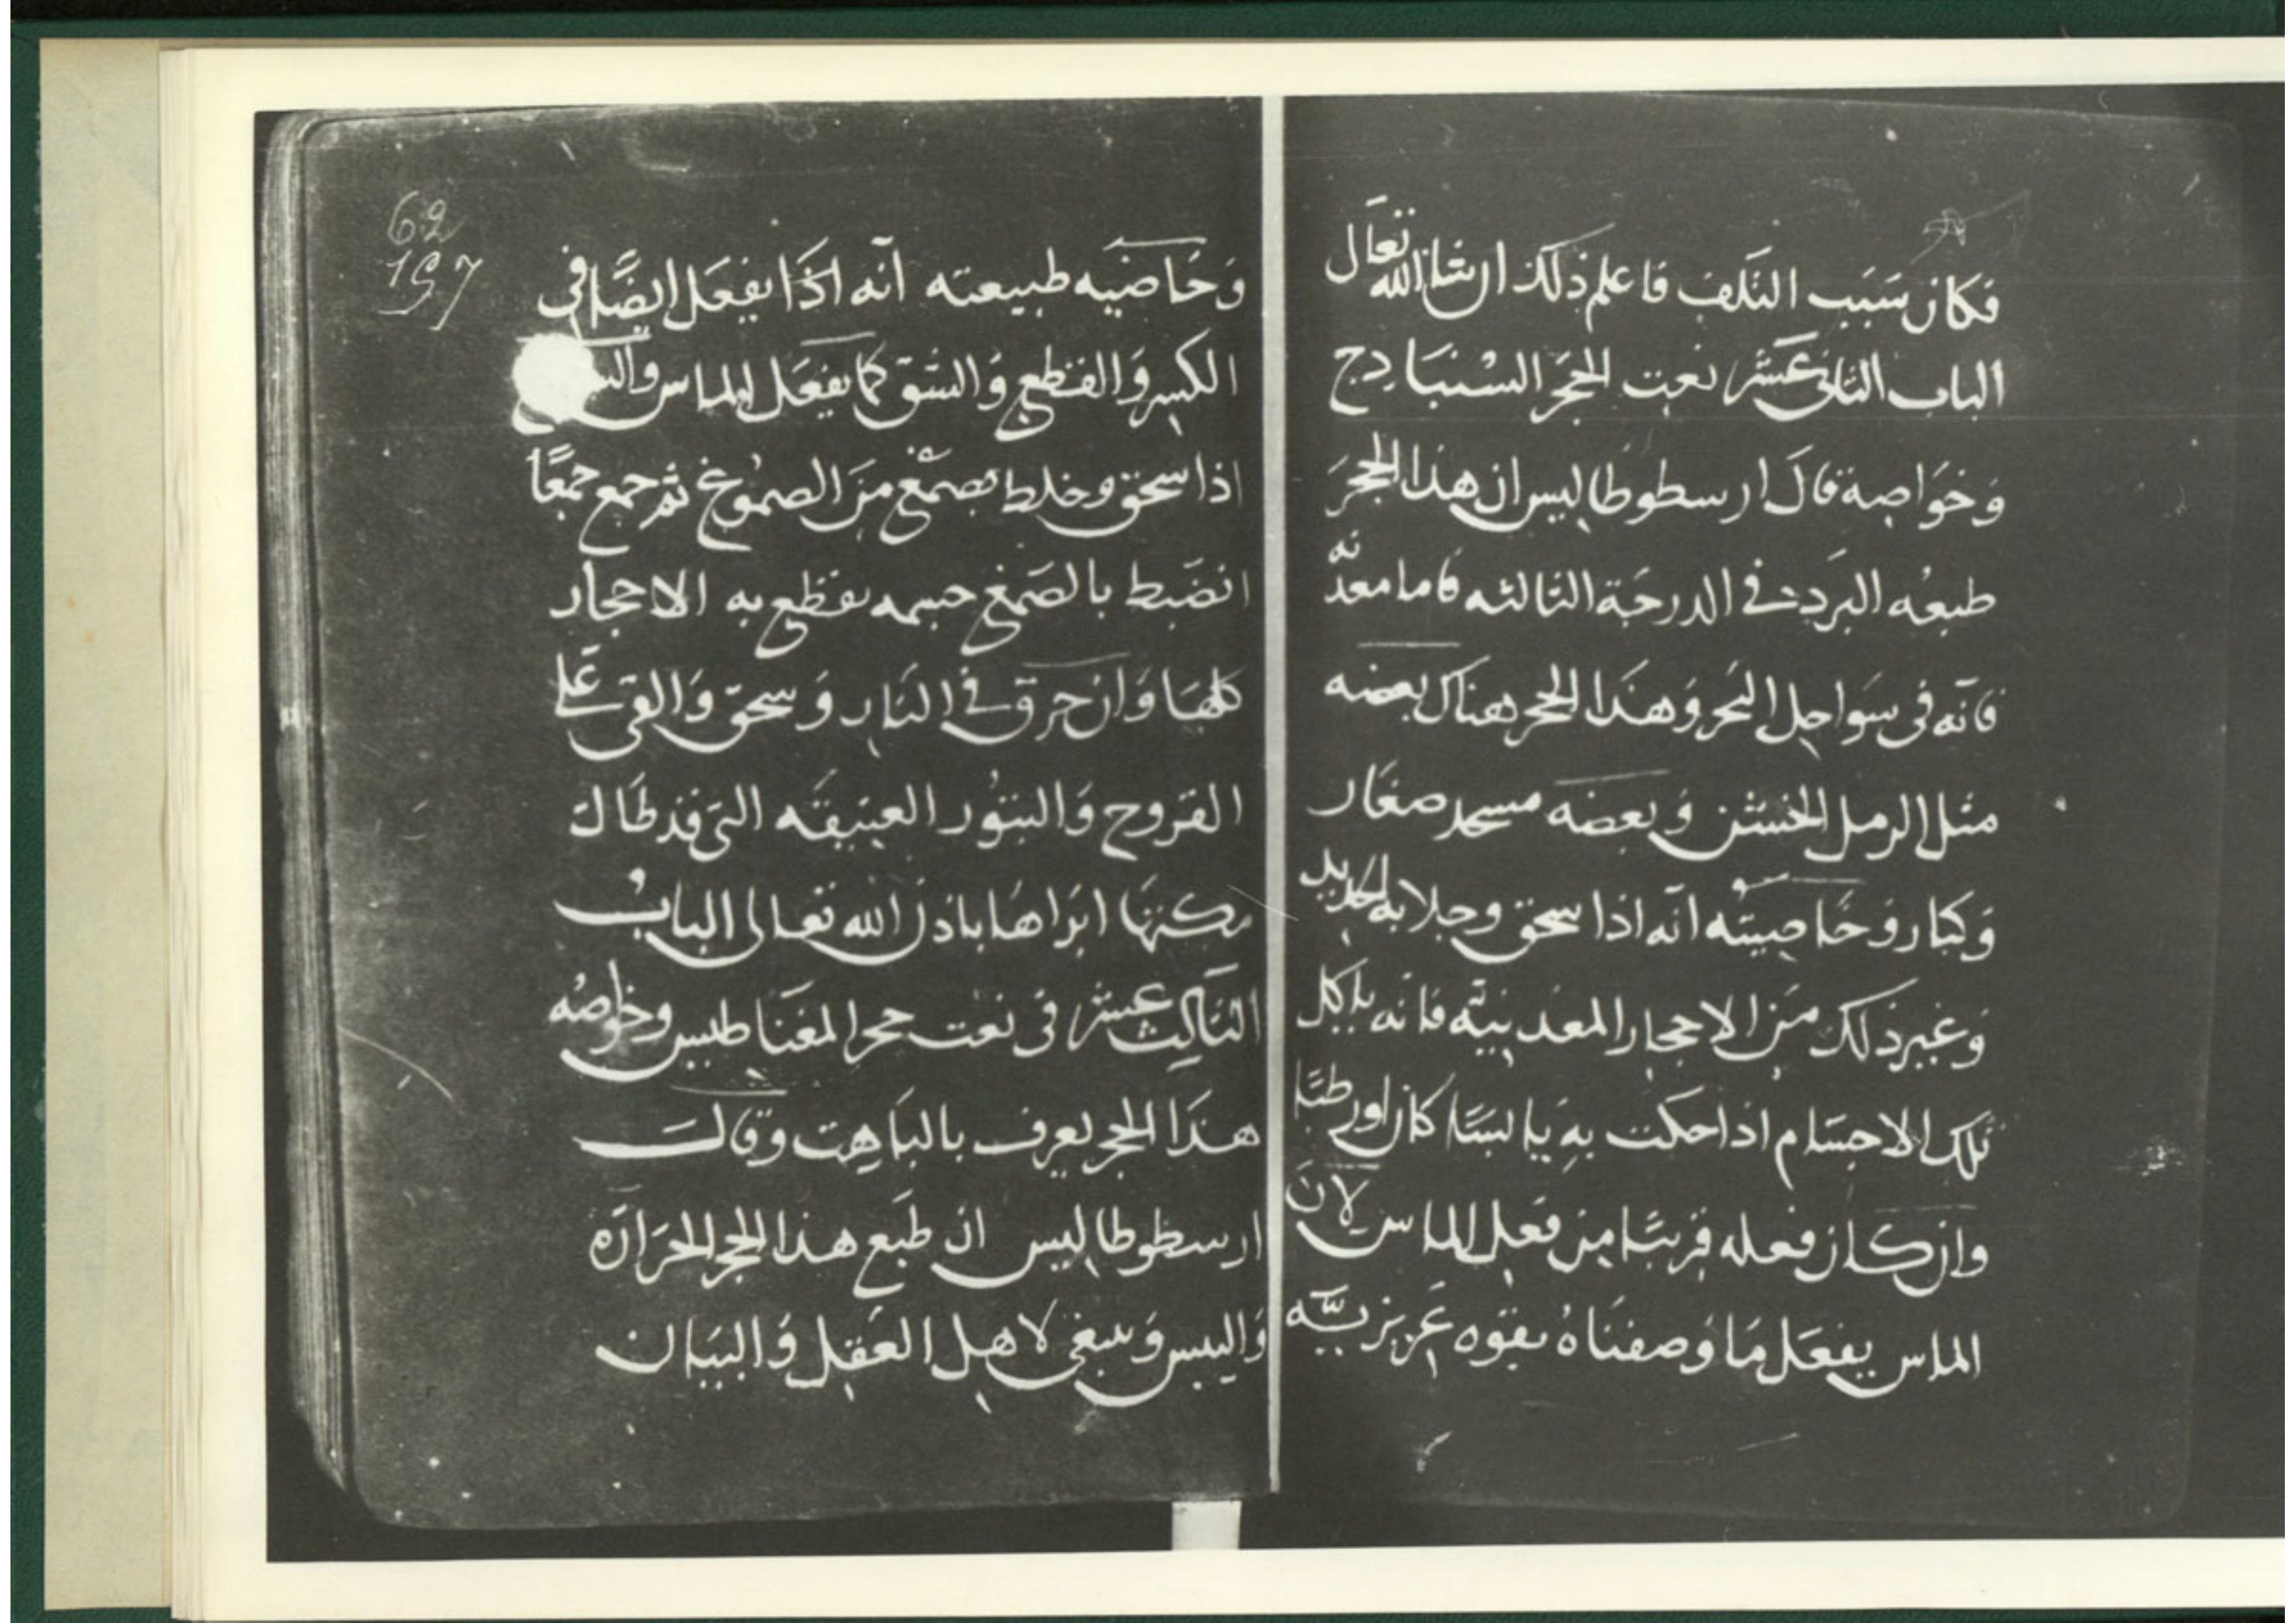 فكان سَبَب التَلف فاعلم ذلك ان شا الله تعَالى
الباب الثانى عَشر نعت الحجَر السْنبَادج
وَخوَاصه قالَ ارسطوطاليس ان هذا الحجرَ
طبعُه البَرد فى الدرجَة الثالثه فاما معدنه
فانه فى سَواحِل البَحر وَهذَا الحجر هناك بعضه
مثل الرمل الخشْن وَبعضه صغَار
وَكبار وَخَاصيَته انه اذا سحق وجلا به الحديد
وَغيرذلك مِنَ الاحجار المعَدنيّه فانه ياكل
تلك الاجسَام اذا حكت بهِ يابسًا كان اورطبًا
وان كان فعله قريبًا مِن فعل الماس لانَ
الماس يفعَل مَا وَصفنَاهُ بقوه عَزيزيّه
62
157
وَخَاصيَه طبيعته انه اذَا يفعَل ايضًا فى
الكسر وَالقطع وَالشق كما يفعَل الماس
اذا سحق وخلط بصمْغ مِنَ الصمُوغ ثم جمع جمعًا
انضَبط بالصَمغ جسمه يقطع به الاحجار
كلهَا وَان حرق فى النَار وَسحق وَالقى عَلى
القرُوح وَالبثوُر العَتيقَه التى قد طَال
مكثهَا ابرَاهَا باذن الله تعَالى البابُ
الثَالث عشر فى نعت حجر المغنَاطيس وخواصُه
هذَا الحجر يعرف بالبَاهِت وَقالَ
ارسطوطاليس ان طبَع هذا الحجر الحرَارَه
وَاليبس وَينبغى لاهل العَقِل وَالبيَان